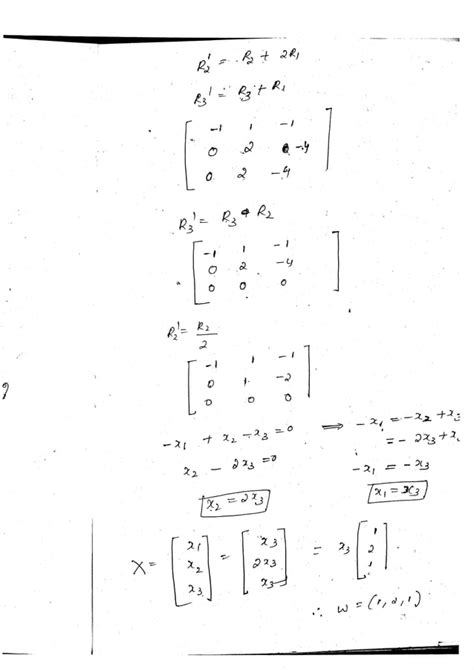 R2' = R2 + 2R1
R3' = R3 + R1
[ -1 1 -1
0 2 -4
0 2 -4 ]
R3' = R3 R2
[ -1 1 -1
0 2 -4
0 0 0 ]
R2' = R2/2
[ -1 1 -1
0 1 -2
0 0 0 ]
-x1 + x2 - x3 = 0 ⟹ -x1 = -x2 + x3
x2 - 2x3 = 0 = -2x3 + x
x2 = 2x3 -x1 = -x3
x1 = x3
X = [ x1 x2 x3 ] = [ x3 2x3 x3 ] = x3 [ 1 2 1 ]
∴ W = (1, 2, 1)